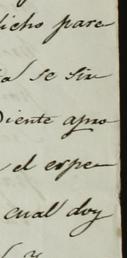 dicho pare
se sir
diente apro
el expe-
cual doy